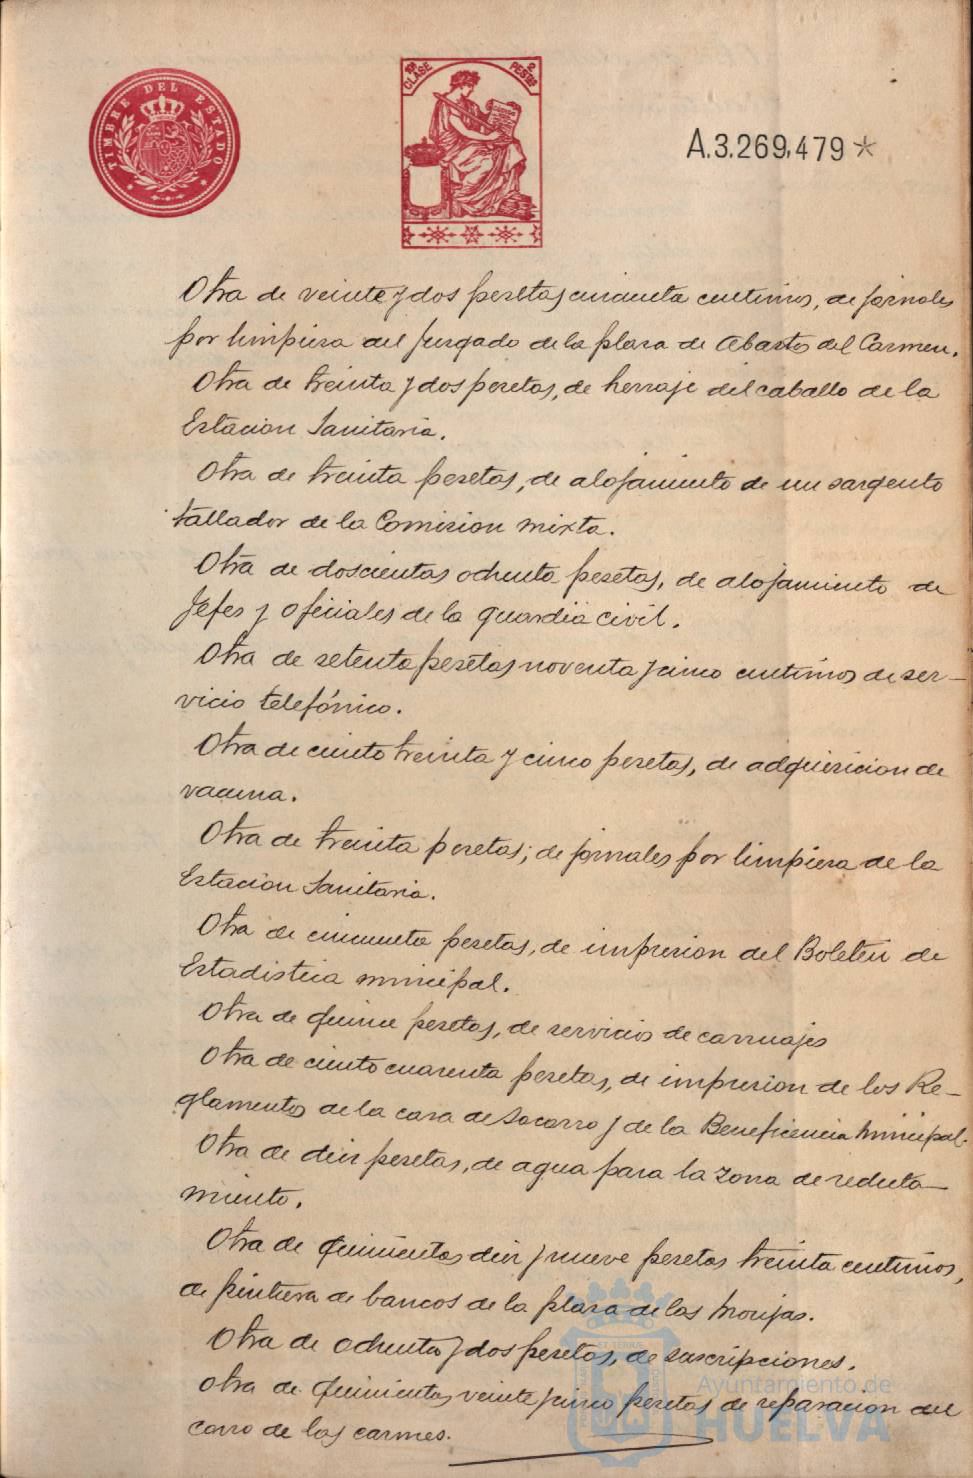 TIMBRE DEL ESTADO
10ª CLASE 2 PESETAS
A.3.269,479*
Otra de veinte y dos pesetas cincuenta centimos, de jornales
por limpieza del Juzgado de la plaza de Abastos del Carmen.
Otra de treinta y dos pesetas, de herraje del caballo de la
Estacion Sanitaria.
Otra de treinta pesetas, de alojamiento de un sargento
tallador de la Comision mixta.
Otra de doscientas ochenta pesetas, de alojamiento de
Jefes y oficiales de la guardia civil.
Otra de setenta pesetas noventa y cinco centimos de ser-
vicio telefónico.
Otra de ciento treinta y cinco pesetas, de adquisicion de
vacuna.
Otra de treinta pesetas; de jornales por limpieza de la
Estacion Sanitaria.
Otra de cincuenta pesetas, de impresion del Boletin de
Estadistica municipal.
Otra de quince pesetas, de servicios de carruajes
Otra de ciento cuarenta pesetas, de impresion de los Re-
glamentos de la casa de Socorro y de la Beneficencia Municipal.
Otra de diez pesetas, de agua para la zona de recluta-
miento.
Otra de quinientas diez y nueve pesetas treinta centimos,
de pintura de bancos de la plaza de las Monjas.
Otra de ochenta y dos pesetas, de suscripciones.
Otra de quinientas veinte y cinco pesetas de reparacion del
carro de las carnes.
Ayuntamiento de
HUELVA